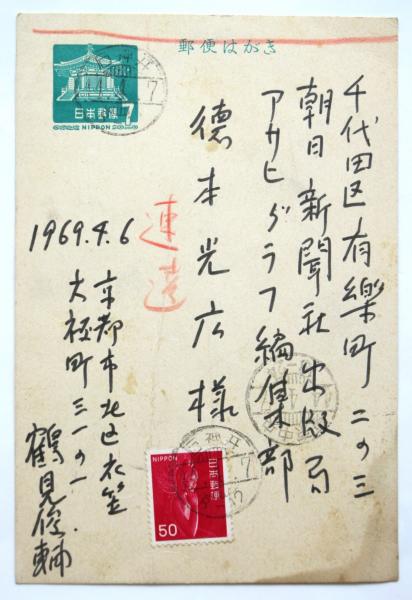 郵便はがき
日本郵便
7
NIPPON
千代田区有楽町二の三
朝日新聞社出版局
アサヒグラフ編集部
徳本光広様
速達
1969.4.6
京都市北区衣笠
大祓町三一の一
鶴見俊輔
NIPPON
日本郵便
50